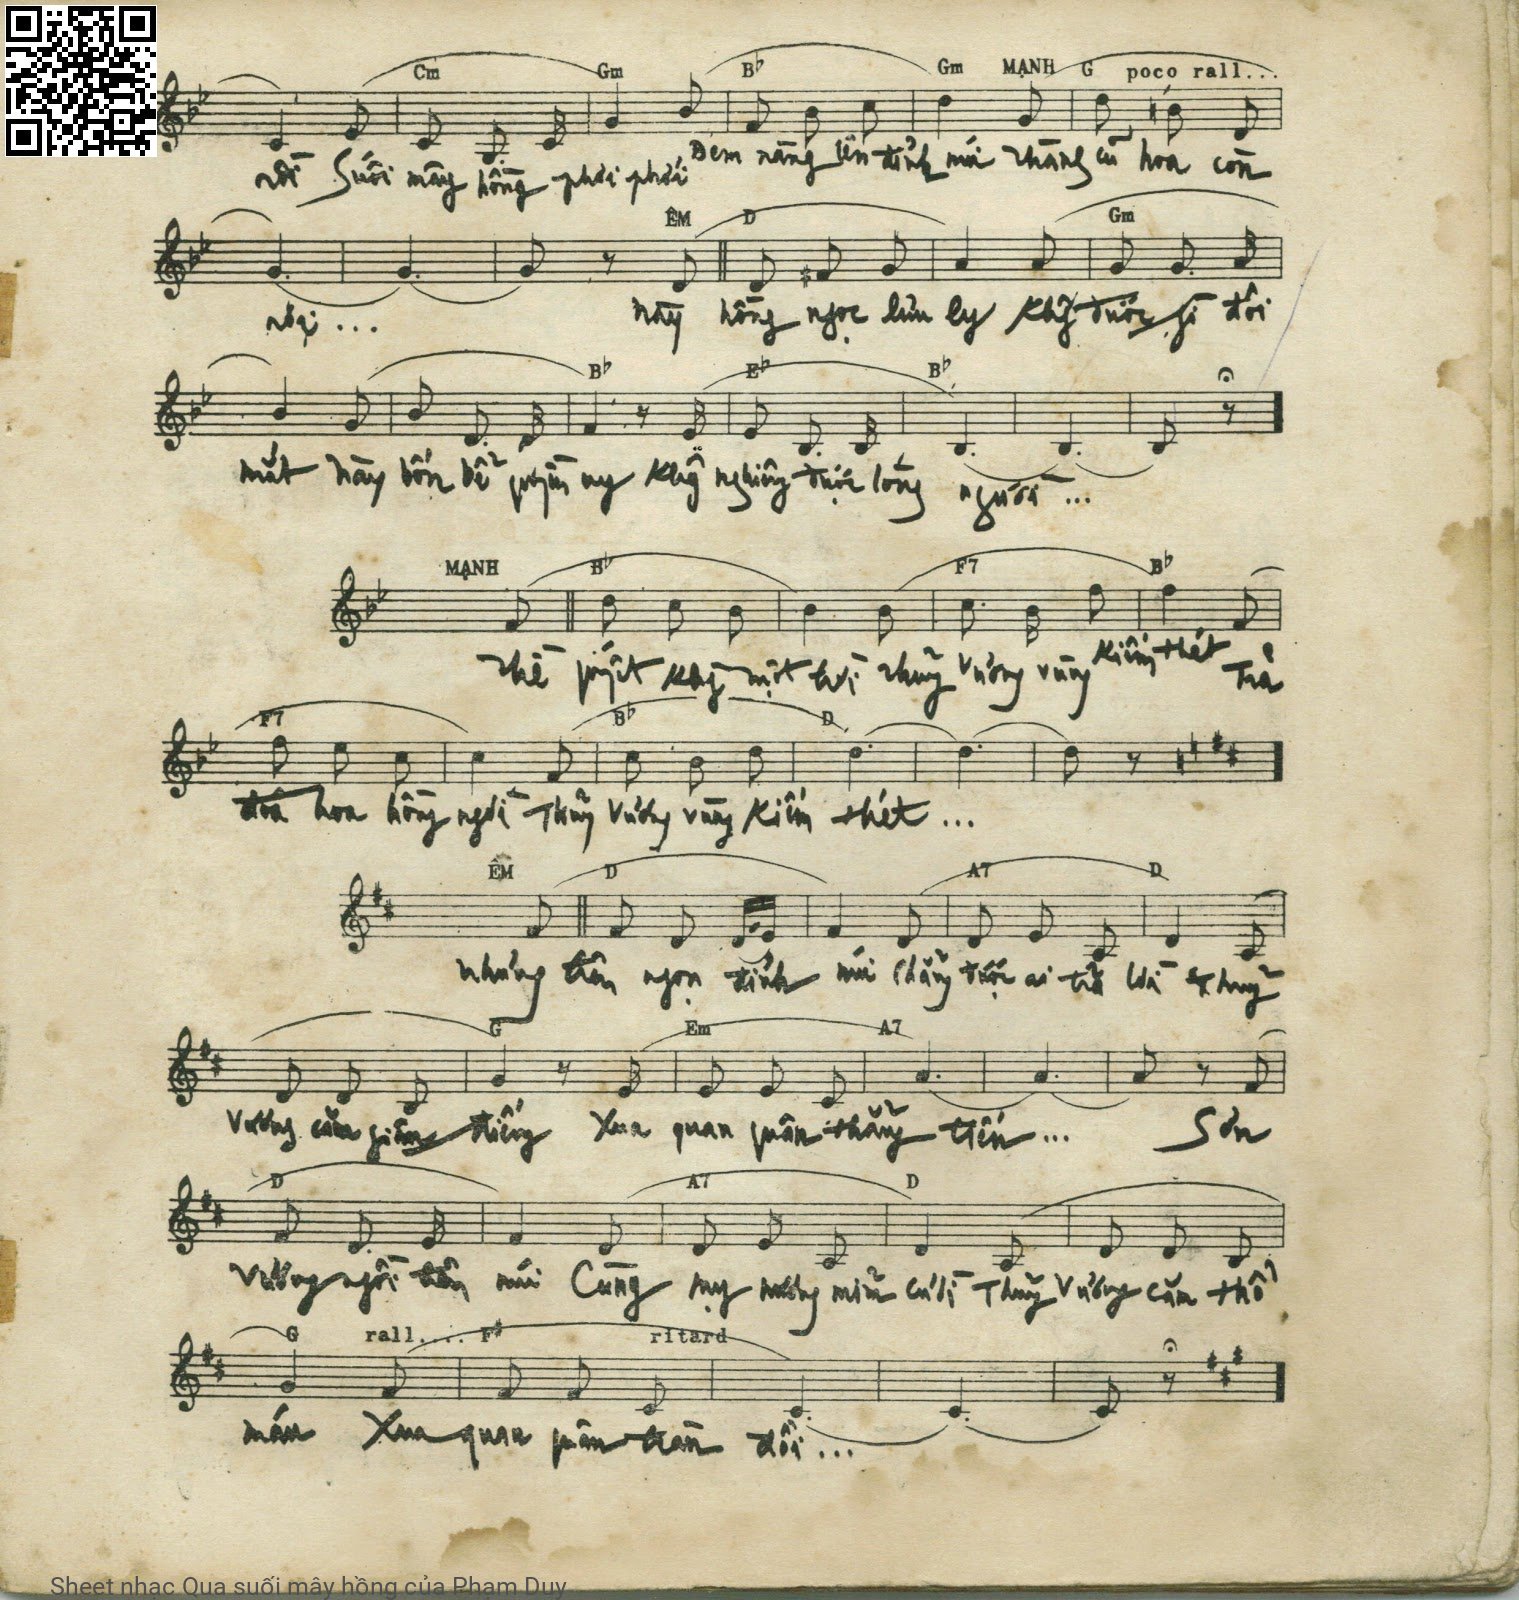 Cm Gm B♭ Gm MẠNH G poco rall...
rồi Suối mây hồng phơi phới Đem nàng lên đỉnh núi hoa còn
ÊM D Gm
... này hồng ngọc lưu ly được gì đôi
B♭ E♭ B♭
mắt này bốn bể nghiêng được lòng người ...
MẠNH B♭ F7 B♭
quyết một lời Thủy Vương vùng Kiếm thét Trả
F7 B♭ D
đoá hoa hồng ngời Thủy Vương vùng Kiếm thét ...
ÊM D A7 D
nhưng trên ngọn đỉnh núi được ai trả lời Thuỷ
G Em A7
Vương căm giận Xua quan quân thẳng tiến ... Sơn
D A7 D
Vương ngồi trên núi Cùng mỵ nương mỉm cười Thuỷ Vương căm thổ
G rall.... F# ritard
máu Xua quan quân tràn đồi ...
Sheet nhạc Qua suối mây hồng của Phạm Duy